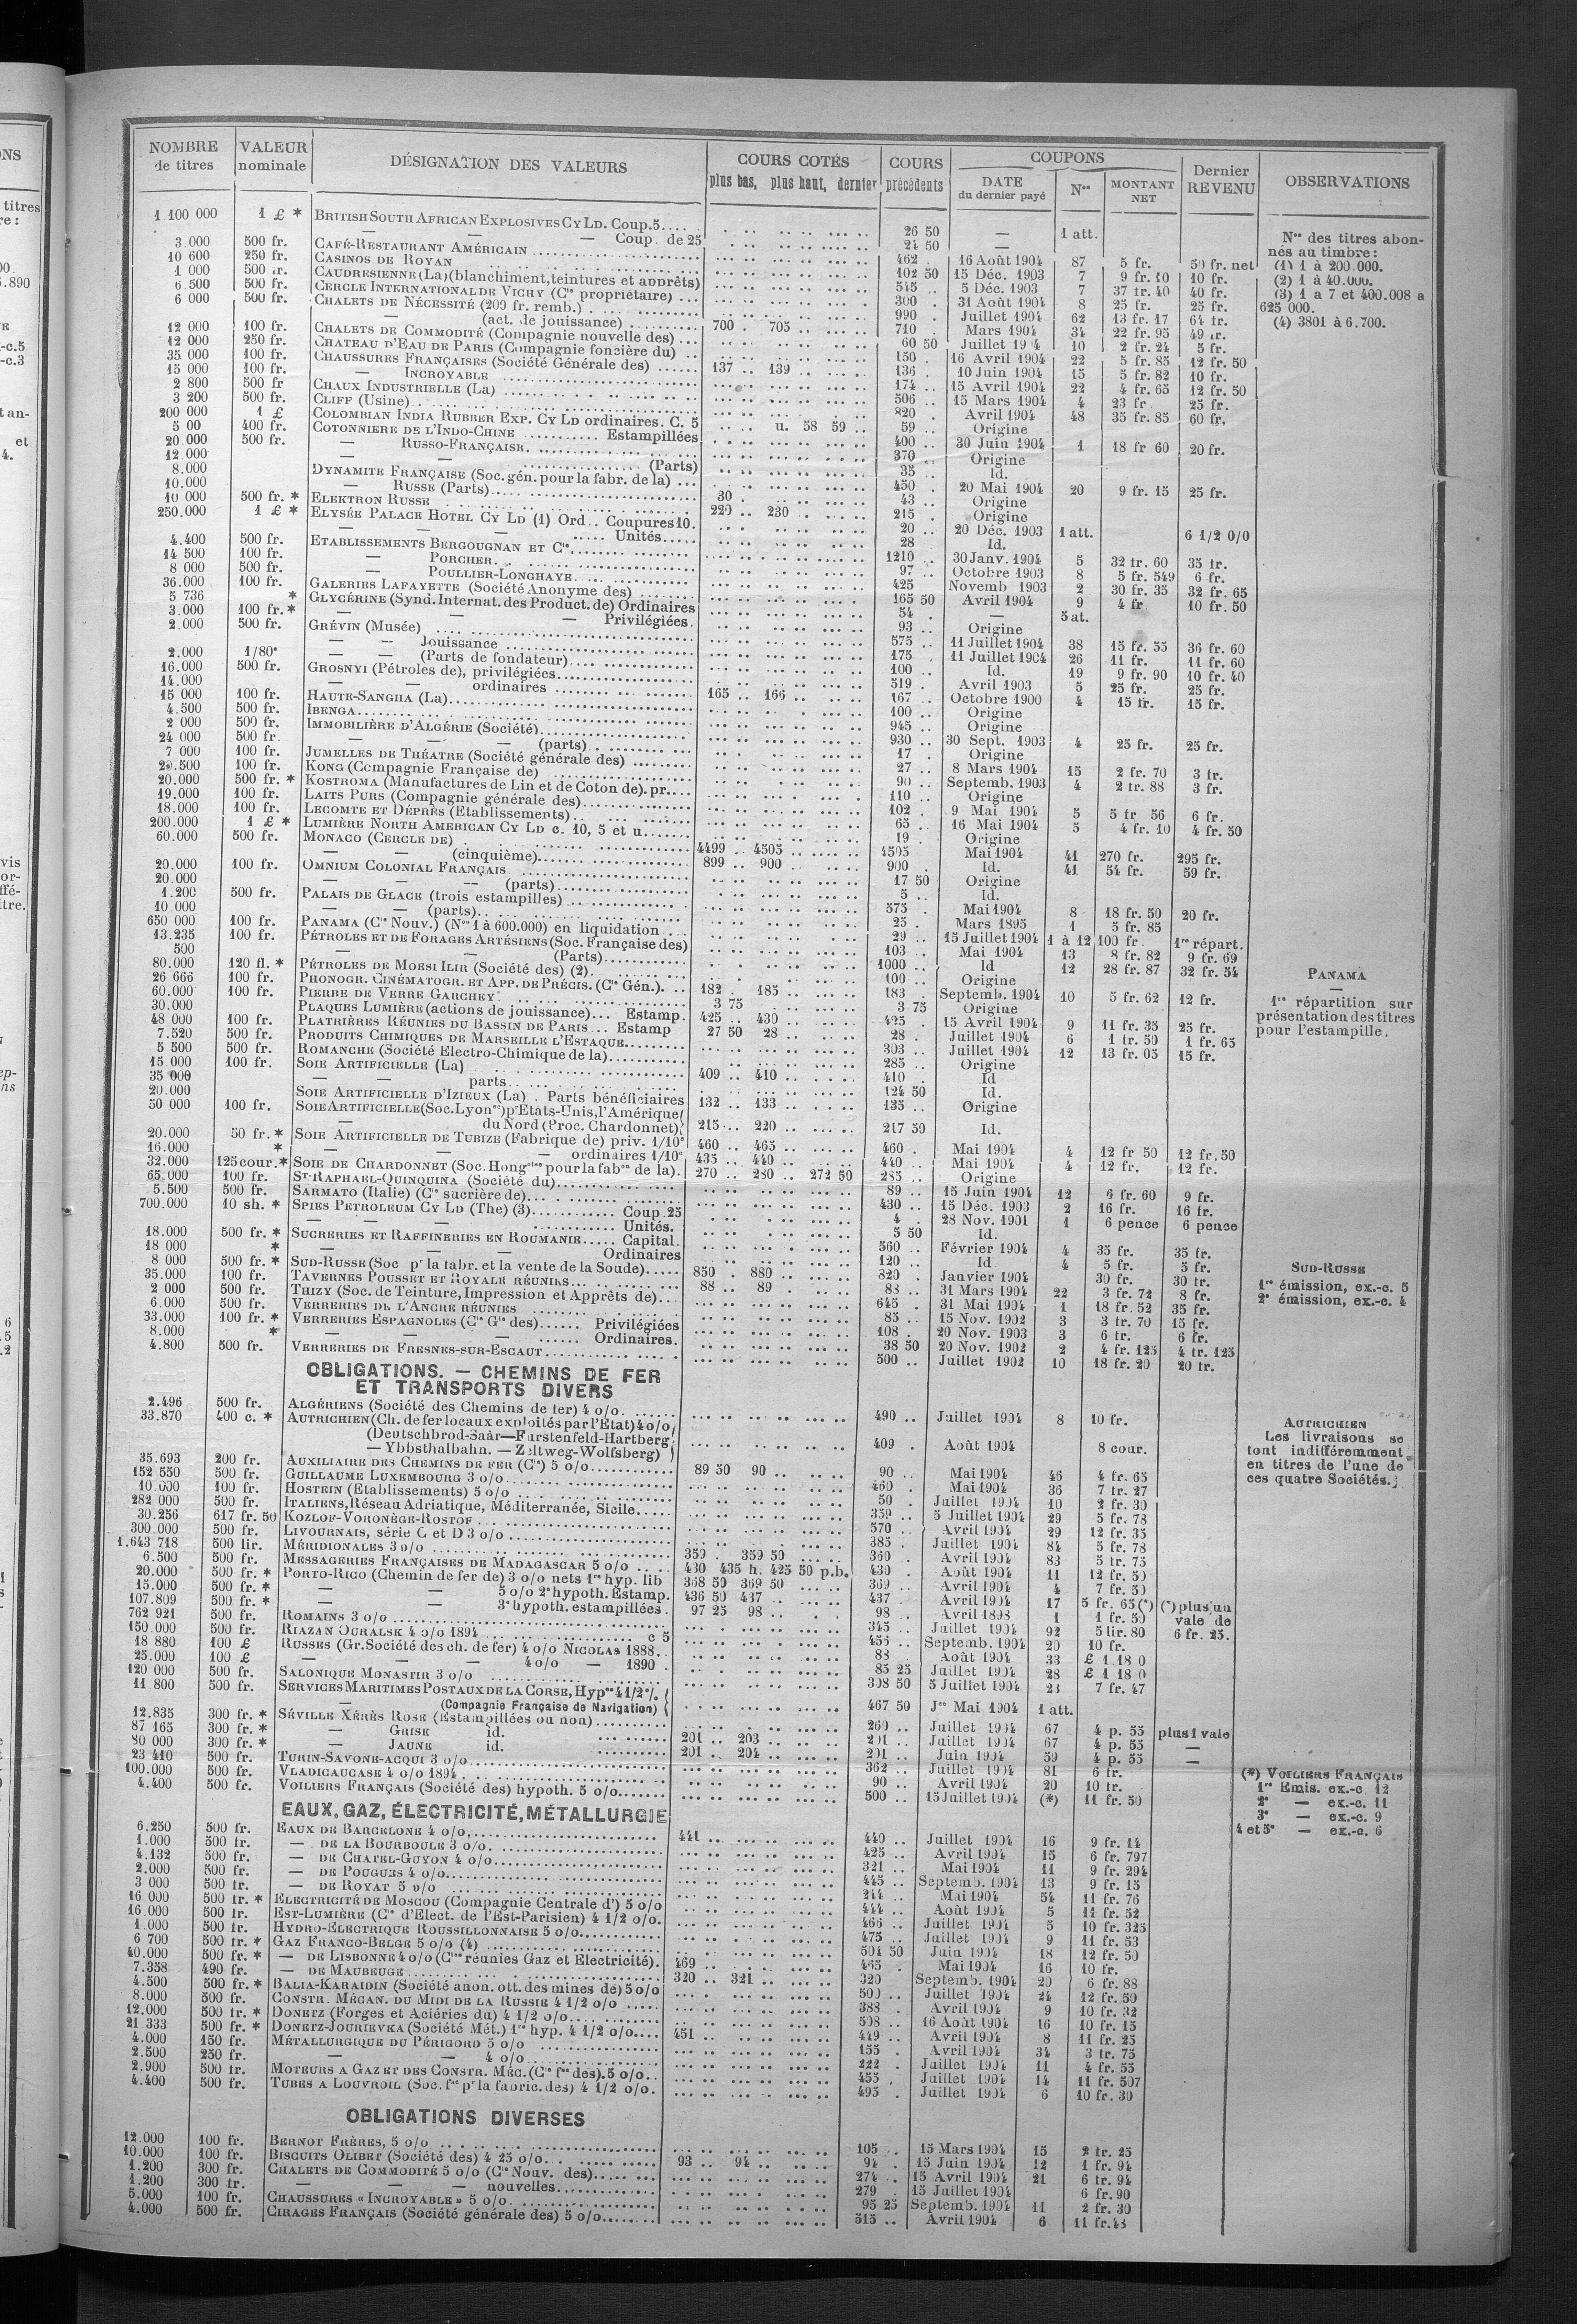 NOMBRE de titres | VALEUR nominale | DÉSIGNATION DES VALEURS | COURS COTÉS plus bas, plus haut, dernier | COURS précédents | COUPONS DATE du dernier payé | Nos | MONTANT NET | Dernier REVENU | OBSERVATIONS
1 100 000 1 £ * BRITISH SOUTH AFRICAN EXPLOSIVES CY LD. Coup. 5.... 26 50 — 1 att.
— — — Coup. de 25 24 50 —
3.000 500 fr. CAFÉ-RESTAURANT AMÉRICAIN 462 16 Août 1904 87 5 fr. 50 fr. net
10 600 250 fr. CASINOS DE ROYAN 102 50 15 Déc. 1903 7 9 fr. 10 10 fr.
1 000 500 fr. CAUDRESIENNE (La) (blanchiment, teintures et apprêts) 545 .. 5 Déc. 1903 7 37 fr. 40 40 fr.
6.500 500 fr. CERCLE INTERNATIONAL DE VICHY (Cie propriétaire) ... 300 . 31 Août 1904 8 25 fr. 25 fr.
6 000 500 fr. CHALETS DE NÉCESSITÉ (200 fr. remb.) 990 . Juillet 1904 62 13 fr. 17 64 fr.
— (act. de jouissance) 700 . 705 .. 710 Mars 1904 34 22 fr. 95 49 fr.
12 000 100 fr. CHALETS DE COMMODITÉ (Compagnie nouvelle des) ... 60 50 Juillet 1904 10 2 fr. 24 5 fr.
12 000 250 fr. CHATEAU D'EAU DE PARIS (Compagnie foncière du) .. 150 . 16 Avril 1904 22 5 fr. 85 12 fr. 50
35 000 100 fr. CHAUSSURES FRANÇAISES (Société Générale des) ...... 137 .. 139 .. 136 . 10 Juin 1904 15 5 fr. 82 10 fr.
15 000 100 fr. — INCROYABLE 174 .. 15 Avril 1904 22 4 fr. 65 12 fr. 50
2 800 500 fr CHAUX INDUSTRIELLE (La) 506 .. 15 Mars 1904 4 23 fr. 25 fr.
3 200 500 fr. CLIFF (Usine) 820 . Avril 1904 48 35 fr. 85 60 fr.
200 000 1 £ COLOMBIAN INDIA RUBBER EXP. CY LD ordinaires. C. 5 .. .. u. 58 59 .. 59 .. Origine
400 fr. COTONNIERE DE L'INDO-CHINE .......... Estampillées 400 .. 30 Juin 1904 1 18 fr 60 20 fr.
20.000 500 fr. — RUSSO-FRANÇAISE 370 .. Origine
12.000 — — (Parts) 35 .. Id.
8.000 DYNAMITE FRANÇAISE (Soc. gén. pour la fabr. de la) ... 450 . 20 Mai 1904 20 9 fr. 15 25 fr.
10.000 — RUSSE (Parts) 30 . 43 . Origine
10 000 500 fr. * ELEKTRON RUSSE 220 .. 230 .. 215 . Origine
250.000 1 £ * ELYSÉE PALACE HOTEL CY LD (1) Ord .. Coupures 10. 20 .. 20 Déc. 1903 1 att. 6 1/2 0/0
— — — ..... Unités..... 28 Id.
4.400 500 fr. ETABLISSEMENTS BERGOUGNAN ET Cie 1210 . 30 Janv. 1904 5 32 fr. 60 35 fr.
14 500 100 fr. — PORCHER 97 .. Octobre 1903 8 5 fr. 549 6 fr.
8 000 500 fr. — POULLIER-LONGHAYE 425 Novemb 1903 2 30 fr. 35 32 fr. 65
36.000 100 fr. GALERIES LAFAYETTE (Société Anonyme des) 165 50 Avril 1904 9 4 fr. 10 fr. 50
5 736 * GLYCÉRINE (Synd. Internat. des Product. de) Ordinaires 54 . — 5 at.
3.000 100 fr. * — — Privilégiées. 93 .. Origine
2.000 500 fr. GRÉVIN (Musée) 575 .. 11 Juillet 1904 38 15 fr. 55 36 fr. 60
— — Jouissance 175 . 11 Juillet 1904 26 11 fr. 11 fr. 60
2.000 1/80e — — (Parts de fondateur) 100 .. Id. 19 9 fr. 90 10 fr. 40
16.000 500 fr. GROSNYI (Pétroles de), privilégiées 519 . Avril 1903 5 25 fr. 25 fr.
14.000 — — ordinaires 165 .. 166 .. 167 . Octobre 1900 4 15 fr. 15 fr.
15 000 100 fr. HAUTE-SANGHA (La) 100 .. Origine
4.500 500 fr. IBENGA 945 .. Origine
2 000 500 fr. IMMOBILIÈRE D'ALGÉRIE (Société) 930 .. 30 Sept. 1903 4 25 fr. 25 fr.
24 000 500 fr. — — — (parts) 17 . Origine
7 000 100 fr. JUMELLES DE THÉATRE (Société générale des) 27 .. 8 Mars 1904 15 2 fr. 70 3 fr.
100 fr. KONG (Compagnie Française de) 90 .. Septemb. 1903 4 2 fr. 88 3 fr.
20.000 500 fr. * KOSTROMA (Manufactures de Lin et de Coton de). pr.... 110 .. Origine
19.000 100 fr. LAITS PURS (Compagnie générale des) 102 . 9 Mai 1904 5 5 fr 56 6 fr.
18.000 100 fr. LECOMTE ET DÉPRÈS (Etablissements) 65 .. 16 Mai 1904 5 4 fr. 10 4 fr. 50
200.000 1 £ * LUMIÈRE NORTH AMERICAN CY LD c. 10, 5 et u. 19 . Origine
60.000 500 fr. MONACO (CERCLE DE) 4499 .. 4505 .. 4505 Mai 1904 41 270 fr. 295 fr.
— — (cinquième) 899 .. 900 .. 900 . Id. 41 54 fr. 59 fr.
20.000 100 fr. OMNIUM COLONIAL FRANÇAIS 17 50 Origine
20.000 — — — (parts) 5 .. Id.
1.200 500 fr. PALAIS DE GLACE (trois estampilles) 575 . Mai 1904 8 18 fr. 50 20 fr.
10 000 — — (parts) 25 . Mars 1895 1 5 fr. 85
650 000 100 fr. PANAMA (Cie Nouv.) (Nos 1 à 600.000) en liquidation 29 .. 15 Juillet 1904 1 à 12 100 fr. 1re répart.
13.235 100 fr. PÉTROLES ET DE FORAGES ARTÉSIENS (Soc. Française des) 103 . Mai 1904 13 8 fr. 82 9 fr. 69
500 — — — (Parts) 1000 .. Id 12 28 fr. 87 32 fr. 54
80.000 120 fl. * PÉTROLES DE MOESI ILIR (Société des) (2). 100 .. Origine
26 666 100 fr. PHONOGR. CINÉMATOGR. ET APP. DE PRÉCIS. (Cie Gén.). .. 182 . 185 .. 183 Septemb. 1904 10 5 fr. 62 12 fr.
60.000 100 fr. PIERRE DE VERRE GARCHEY 3 75 3 75 Origine
30.000 PLAQUES LUMIÈRE (actions de jouissance)... Estamp. 425 .. 430 .. 425 . 15 Avril 1904 9 11 fr. 35 25 fr.
48 000 100 fr. PLATRIÈRES RÉUNIES DU BASSIN DE PARIS .. Estamp 27 50 28 .. 28 . Juillet 1904 6 1 fr. 50 1 fr. 65
7.520 500 fr. PRODUITS CHIMIQUES DE MARSEILLE L'ESTAQUE 303 .. Juillet 1904 12 13 fr. 05 15 fr.
5 500 500 fr. ROMANCHE (Société Electro-Chimique de la) 285 .. Origine
15 000 100 fr. SOIE ARTIFICIELLE (La) 409 .. 410 .. 410 . Id
35 000 — — parts 124 50 Id.
20.000 SOIE ARTIFICIELLE D'IZIEUX (La) . Parts bénéficiaires 132 .. 133 .. 135 .. Origine
50 000 100 fr. SOIE ARTIFICIELLE (Soc. Lyonse) pr Etats-Unis, l'Amérique
— du Nord (Proc. Chardonnet) 215 .. 220 .. 217 50 Id.
20.000 50 fr. * SOIE ARTIFICIELLE DE TUBIZE (Fabrique de) priv. 1/10e 460 .. 465 .. 460 . Mai 1904 4 12 fr 50 12 fr. 50
16.000 * — — — ordinaires 1/10e 435 .. 440 .. 440 .. Mai 1904 4 12 fr. 12 fr.
32.000 125 cour. * SOIE DE CHARDONNET (Soc. Hongoise pour la fabon de la). 270 .. 280 .. 272 50 285 .. Origine
65.000 100 fr. ST-RAPHAEL-QUINQUINA (Société du) 89 .. 15 Juin 1904 12 6 fr. 60 9 fr.
5.500 500 fr. SARMATO (Italie) (Cie sucrière de) 430 .. 15 Déc. 1903 2 16 fr. 16 fr.
700.000 10 sh. * SPIES PETROLEUM CY LD (The) (3) Coup. 25 4 . 28 Nov. 1901 1 6 pence 6 pence
— — — Unités. 5 50 Id.
18.000 500 fr. * SUCRERIES ET RAFFINERIES EN ROUMANIE ..... Capital. 560 .. Février 1904 4 35 fr. 35 fr.
18 000 * — — — Ordinaires 120 .. Id 4 5 fr. 5 fr.
8 000 500 fr. * SUD-RUSSE (Soc pr la fabr. et la vente de la Soude) 850 . 880 .. 820 . Janvier 1904 30 fr. 30 fr.
35.000 100 fr. TAVERNES POUSSET ET ROYALE RÉUNIES 88 .. 89 . 88 .. 31 Mars 1904 22 3 fr. 72 8 fr.
2 000 500 fr. THIZY (Soc. de Teinture, Impression et Apprêts de) 645 . 31 Mai 1904 1 18 fr. 52 35 fr.
6.000 500 fr. VERRERIES DE L'ANCRE RÉUNIES 85 .. 15 Nov. 1902 3 3 fr. 70 15 fr.
33.000 100 fr. * VERRERIES ESPAGNOLES (Cie Gle des) Privilégiées 108 . 20 Nov. 1903 3 6 fr. 6 fr.
8.000 * — — — Ordinaires. 38 50 20 Nov. 1902 2 4 fr. 125 4 fr. 125
4.800 500 fr. VERRERIES DE FRESNES-SUR-ESCAUT 500 .. Juillet 1902 10 18 fr. 20 20 fr.
OBLIGATIONS. — CHEMINS DE FER
ET TRANSPORTS DIVERS
2.496 500 fr. ALGÉRIENS (Société des Chemins de fer) 4 o/o 490 .. Juillet 1904 8 10 fr.
33.870 400 c. * AUTRICHIEN (Ch. de fer locaux exploités par l'Etat) 4 o/o
(Deutschbrod-Saar—Furstenfeld-Hartberg
— Ybbsthalbahn. — Zeltweg-Wolfsberg) 409 . Août 1904 8 cour.
35.693 200 fr. AUXILIAIRE DES CHEMINS DE FER (Cie) 5 o/o 89 50 90 .. 90 .. Mai 1904 46 4 fr. 65
152 550 500 fr. GUILLAUME LUXEMBOURG 3 o/o 460 . Mai 1904 36 7 fr. 27
10.000 100 fr. HOSTEIN (Etablissements) 5 o/o 50 . Juillet 1904 10 2 fr. 30
282 000 500 fr. ITALIENS, Réseau Adriatique, Méditerranée, Sicile 359 .. 5 Juillet 1904 29 5 fr. 78
30.256 617 fr. 50 KOZLOF-VORONÈGE-ROSTOF 570 .. Avril 1904 29 12 fr. 35
300.000 500 fr. LIVOURNAIS, série C et D 3 o/o 385 . Juillet 1904 84 5 fr. 78
1.643 718 500 lir. MÉRIDIONALES 3 o/o 359 . 359 50 360 . Avril 1904 83 5 fr. 75
6.500 500 fr. MESSAGERIES FRANÇAISES DE MADAGASCAR 5 o/o 430 435 h. 425 50 p.b. 430 . Août 1904 11 12 fr. 50
20.000 500 fr. * PORTO-RICO (Chemin de fer de) 3 o/o nets 1re hyp. lib 368 50 369 50 369 .. Avril 1904 4 7 fr. 50
15.000 500 fr. * — — 5 o/o 2e hypoth. Estamp. 436 50 437 .. 437 . Avril 1904 17 5 fr. 65 (*) (*) plus un
107.809 500 fr. * — — 3e hypoth. estampillées. 97 25 98 .. 98 .. Avril 1898 1 1 fr. 50 vale de
762 921 500 fr. ROMAINS 3 o/o 345 .. Juillet 1904 92 5 lir. 80 6 fr. 25.
150.000 500 fr. RIAZAN OURALSK 4 o/o 1894 c 5 456 .. Septemb. 1904 20 10 fr.
18 880 100 £ RUSSES (Gr. Société des ch. de fer) 4 o/o NICOLAS 1888 88 . Août 1904 33 £ 1 18 0
25.000 100 £ — — — 4 o/o — 1890 . 85 25 Juillet 1904 28 £ 1 18 0
120 000 500 fr. SALONIQUE MONASTIR 3 o/o 308 50 5 Juillet 1904 23 7 fr. 47
11 800 500 fr. SERVICES MARITIMES POSTAUX DE LA CORSE, Hypre 4 1/2 %
— (Compagnie Française de Navigation) 467 50 Jce Mai 1904 1 att.
12.835 300 fr. * SÉVILLE XÉRÈS ROSE (Estampillées ou non) 260 .. Juillet 1904 67 4 p. 55 plus 1 vale
87 165 300 fr. * — GRISE id. 201 .. 203 .. 201 . Juillet 1904 67 4 p. 55 —
80 000 300 fr. * — JAUNE id. 201 .. 204 .. 201 .. Juin 1904 59 4 p. 55 —
23 410 500 fr. TURIN-SAVONE-ACQUI 3 o/o 362 .. Juillet 1904 81 6 fr.
100.000 500 fr. VLADICAUCASE 4 o/o 1894 90 .. Avril 1904 20 10 fr.
4.400 500 fr. VOILIERS FRANÇAIS (Société des) hypoth. 5 o/o 500 .. 15 Juillet 1904 (*) 11 fr. 50
EAUX, GAZ, ÉLECTRICITÉ, MÉTALLURGIE
6.250 500 fr. EAUX DE BARCELONE 4 o/o 441 .. 440 .. Juillet 1904 16 9 fr. 14
1.000 300 fr. — DE LA BOURBOULE 3 o/o 425 .. Avril 1904 15 6 fr. 797
4.132 500 fr. — DE CHATEL-GUYON 4 o/o 321 .. Mai 1904 11 9 fr. 294
2.000 500 fr. — DE POUGUES 4 o/o 445 .. Septemb. 1904 13 9 fr. 15
3 000 500 fr. — DE ROYAT 5 o/o 244 .. Mai 1904 54 11 fr. 76
16 000 500 fr. * ELECTRICITÉ DE MOSCOU (Compagnie Centrale d') 5 o/o 444 .. Août 1904 5 11 fr. 52
16.000 500 fr. EST-LUMIÈRE (Cie d'Elect. de l'Est-Parisien) 4 1/2 o/o. 466 .. Juillet 1904 5 10 fr. 325
1.000 500 fr. HYDRO-ELECTRIQUE ROUSSILLONNAISE 5 o/o 475 .. Juillet 1904 9 11 fr. 53
6 700 500 fr. * GAZ FRANCO-BELGE 5 o/o (4) 501 50 Juin 1904 18 12 fr. 50
40.000 500 fr. * — DE LISBONNE 4 o/o (Cies réunies Gaz et Electricité). 469 .. 465 . Mai 1904 16 10 fr.
7.358 490 fr. — DE MAUBEUGE 320 .. 321 .. 320 Septemb. 1904 20 6 fr. 88
4.500 500 fr. * BALIA-KARAIDIN (Société anon. ott. des mines de) 5 o/o 500 .. Juillet 1904 24 12 fr. 50
8.000 500 fr. CONSTR. MÉCAN. DU MIDI DE LA RUSSIE 4 1/2 o/o 388 . Avril 1904 9 10 fr. 32
12.000 500 fr. * DONETZ (Forges et Aciéries du) 4 1/2 o/o 508 .. 16 Août 1904 16 10 fr. 15
21 333 500 fr. * DONETZ-JOURIEVKA (Société Mét.) 1re hyp. 4 1/2 o/o 451 .. 449 .. Avril 1904 8 11 fr. 25
4.000 150 fr. MÉTALLURGIQUE DU PÉRIGORD 5 o/o 155 . Avril 1904 34 3 fr. 75
2.500 250 fr. — — 4 o/o 222 . Juillet 1904 11 4 fr. 55
2.900 500 fr. MOTEURS A GAZ ET DES CONSTR. MÉC. (Cie fse des). 5 o/o 455 . Juillet 1904 14 11 fr. 507
4.400 500 fr. TUBES A LOUVROIL (Soc. fse pr la fabric. des) 4 1/2 o/o. 495 . Juillet 1904 6 10 fr. 30
OBLIGATIONS DIVERSES
12.000 100 fr. BERNOT FRÈRES, 5 o/o 105 . 15 Mars 1904 15 2 fr. 25
10.000 100 fr. BISCUITS OLIBET (Société des) 4 25 o/o 93 .. 94 .. 94 . 15 Juin 1904 12 1 fr. 94
1.200 300 fr. CHALETS DE COMMODITÉ 5 o/o (Cie Nouv. des) 274 .. 15 Avril 1904 21 6 fr. 94
1.200 300 fr. — — — nouvelles 279 . 15 Juillet 1904 6 fr. 90
5.000 100 fr. CHAUSSURES « INCROYABLE » 5 o/o 95 25 Septemb. 1904 11 2 fr. 30
4.000 500 fr. CIRAGES FRANÇAIS (Société générale des) 5 o/o 515 .. Avril 1904 6 11 fr. 43
Nos des titres abonnés au timbre :
(1) 1 à 200.000.
(2) 1 à 40.000.
(3) 1 a 7 et 400.008 a 625 000.
(4) 3801 à 6.700.
PANAMA
—
1re répartition sur
présentation des titres
pour l'estampille.
SUD-RUSSE
1re émission, ex.-c. 5
2e émission, ex.-c. 4
AUTRICHIEN
Les livraisons se
font indifféremment
en titres de l'une de
ces quatre Sociétés.
(*) VOILIERS FRANÇAIS
1re Emis. ex.-c. 12
2e — ex.-c. 11
3e — ex.-c. 9
4 et 5e — ex.-c. 6